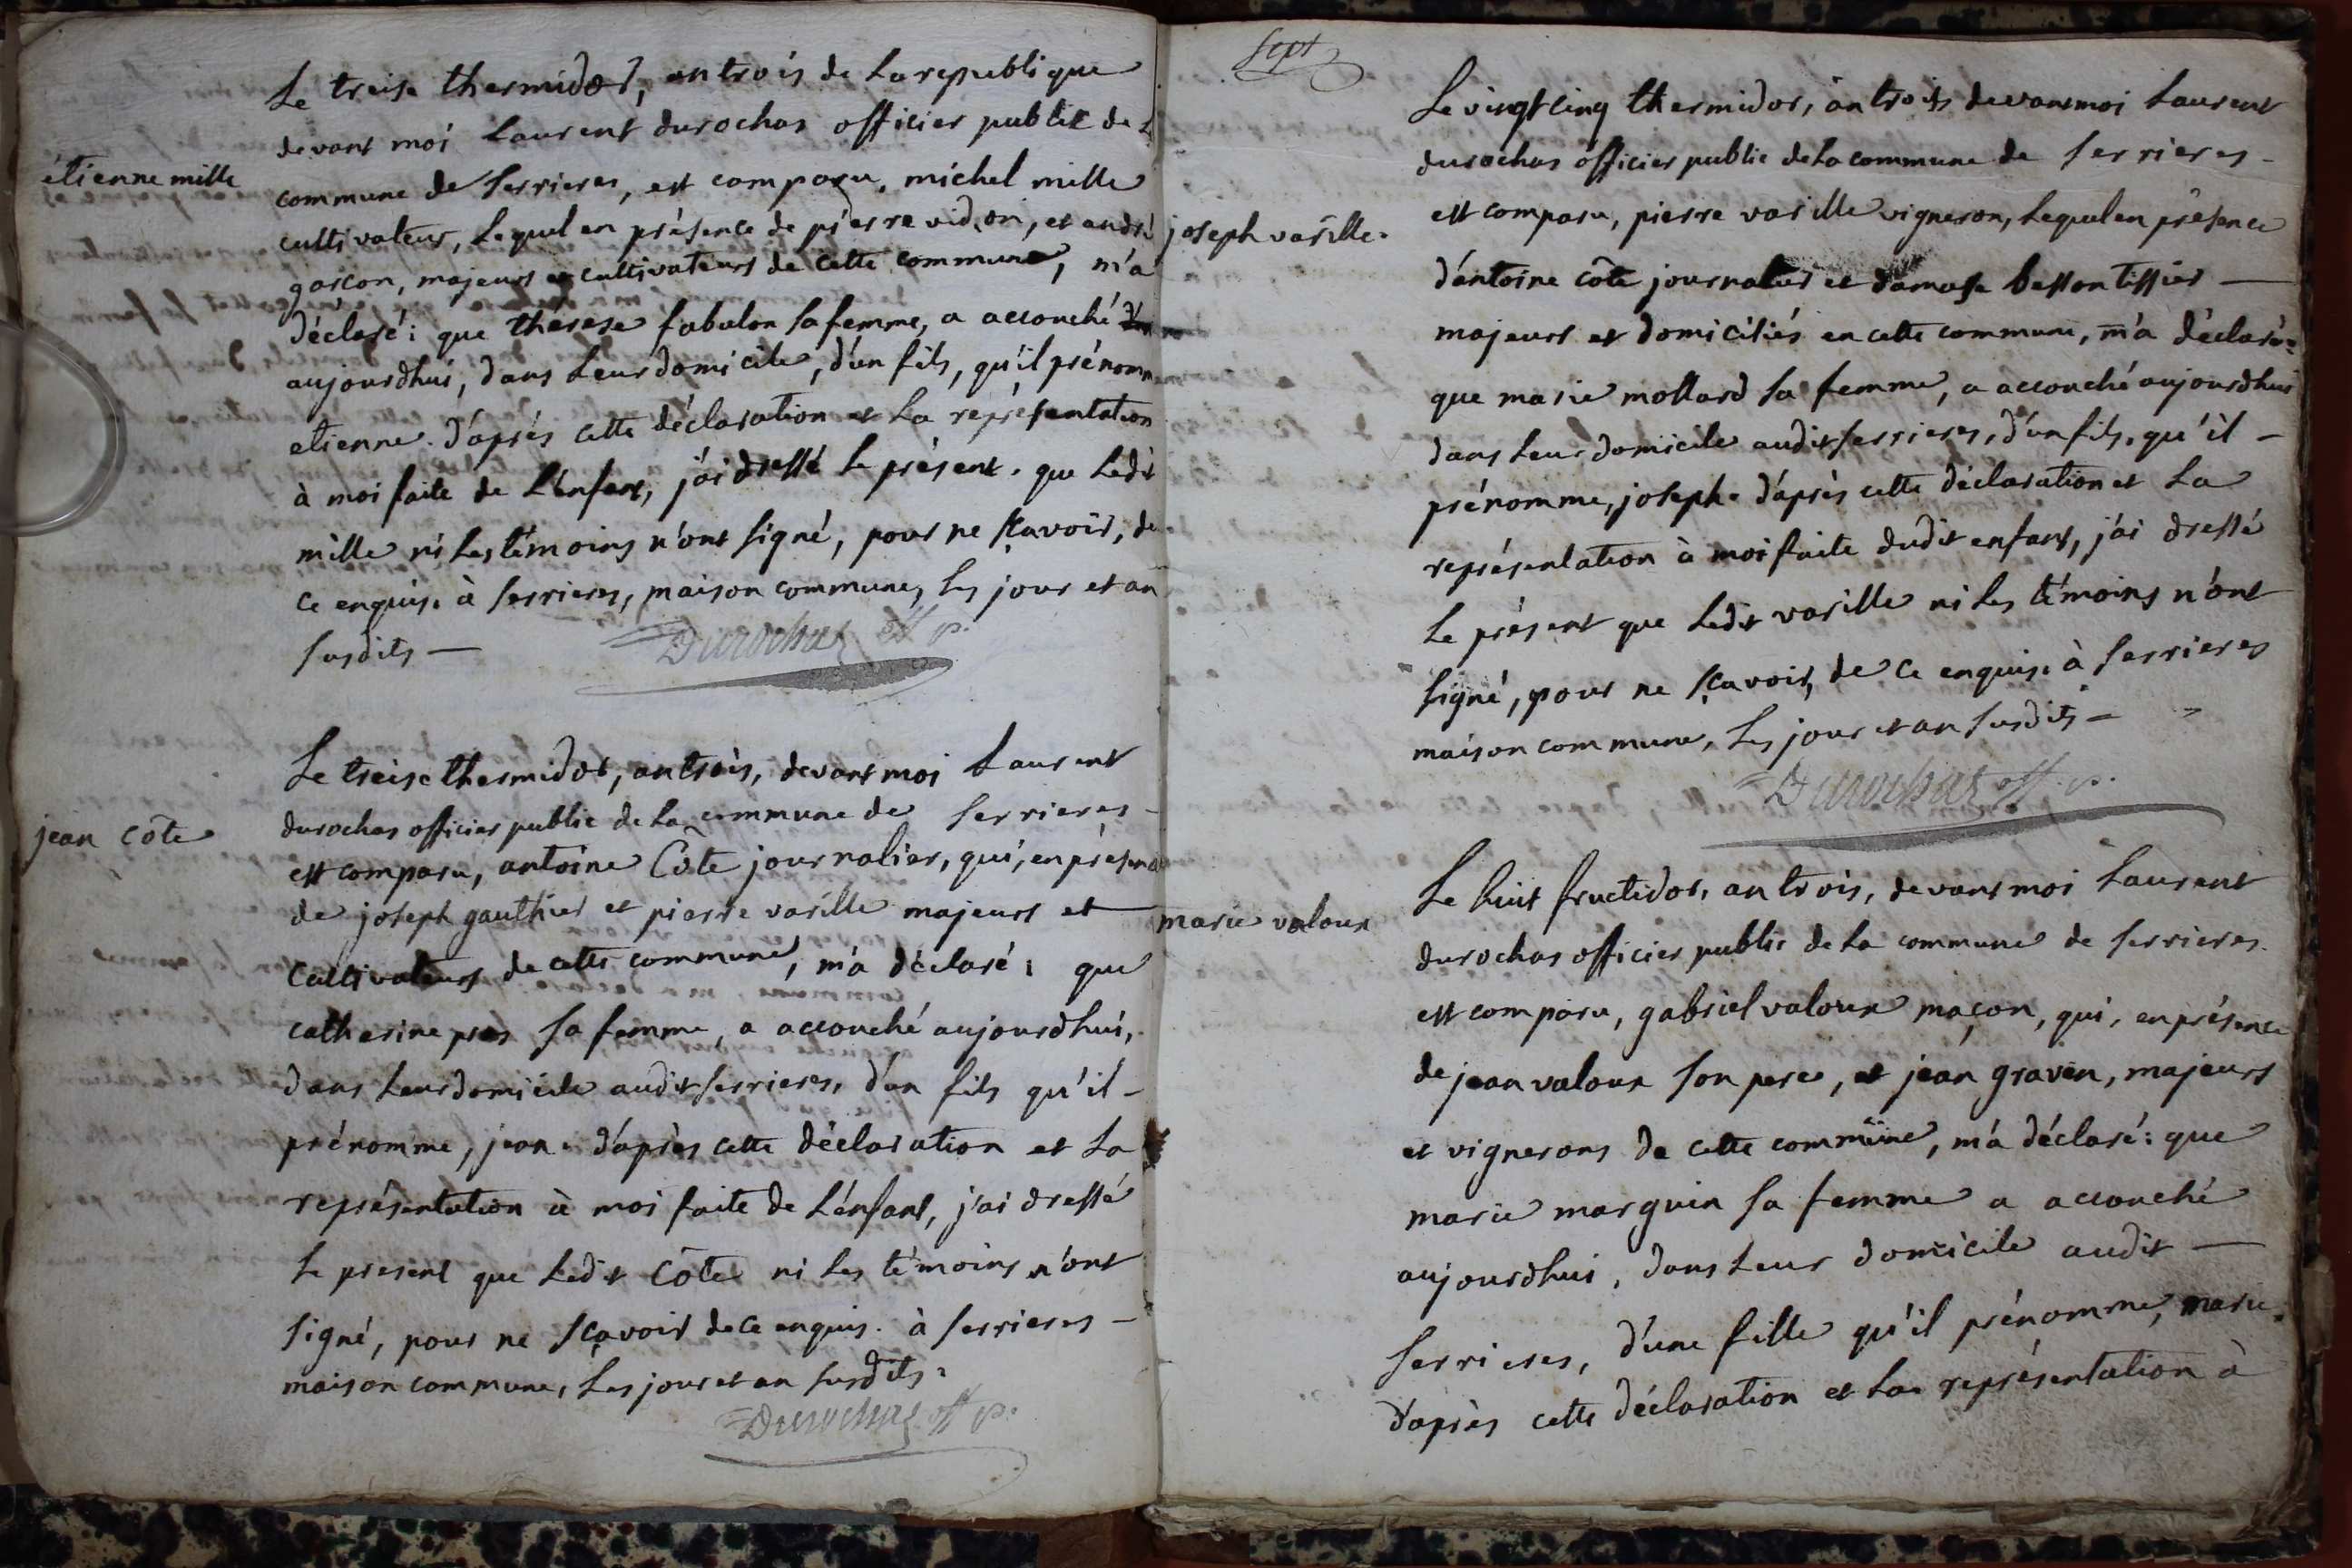 étienne mille
Le treise thermidor, an trois de La republique
devant moi Laurent durochas officier public de L
commune de serrieres, est comparu, michel mille
cultivateur, Lequel en présence de pierre vidon, et andré
garcon, majeurs et cultivateurs de cette commune, m'a
déclaré: que thérese fabulon sa femme, a accouché
aujourdhui, dans Leur domicile, d'un fils, qu'il prénomm
etienne. d'aprés cette déclaration et La représentation
à moi faite de L'énfant, j'ai dressé Le présent. que Ledit
mille ni Les témoins n'ont signé, pour ne sçavoir, de
ce enquis. à serrieres, maison commune, Les jour et an
susdits —
Durochas off p.
jean côte
Le treise thermidor, an trois, devant moi Laurent
durochas officier public de La commune de serrieres -
est comparu, antoine Côte journalier, qui, en présence
de joseph gauthier et pierre varille majeurs et —
Cultivateurs de cette commune, m'a déclaré: que
catherine pras sa femme, a accouché aujourdhui,
dans Leur domicile audit serrieres, d'un fils qu'il -
prénomme, jean. d'après cette déclaration et La
représentation à moi faite de L'énfant, j'ai dressé
Le présent que Ledit Côte ni Les témoins n'ont
signé, pour ne sçavoir de ce enquis. à serrieres -
maison commune, Les jour et an susdits.
Durochas off p.
sept
joseph varille.
Le vingt cinq thermidor, an trois devant moi Laurent
durochas officier public de La commune de serrieres -
est comparu, pierre varille vigneron, Lequel en présence
d'antoine côte journalier et damase besson tissier —
majeurs et domiciliés en cette commune, m'a déclaré:
que marie mollard sa femme, a accouché aujourdhui
dans Leur domicile audit serrieres, d'un fils, qu'il -
prénomme, joseph. d'après cette déclaration et La
représentation à moi faite dudit enfant, j'ai dressé
Le présent que Ledit varille ni Les témoins n'ont
signé, pour ne sçavoir, de ce enquis. à serrieres
maison commune, Les jour et an susdits -
Durochas off. p.
marie valoux
Le huit fructidor, an trois, devant moi Laurent
durochas officier public de La commune de serrieres.
est comparu, gabriel valoux maçon, qui, en présence
de jean valoux son pere, et jean graven, majeurs
et vignerons de cette commune, m'a déclaré: que
marie marguin sa femme a accouché
aujourdhui, dans Leur domicile audit —
serrieres, d'une fille qu'il prénomme, marie.
d'après cette déclaration et La représentation à